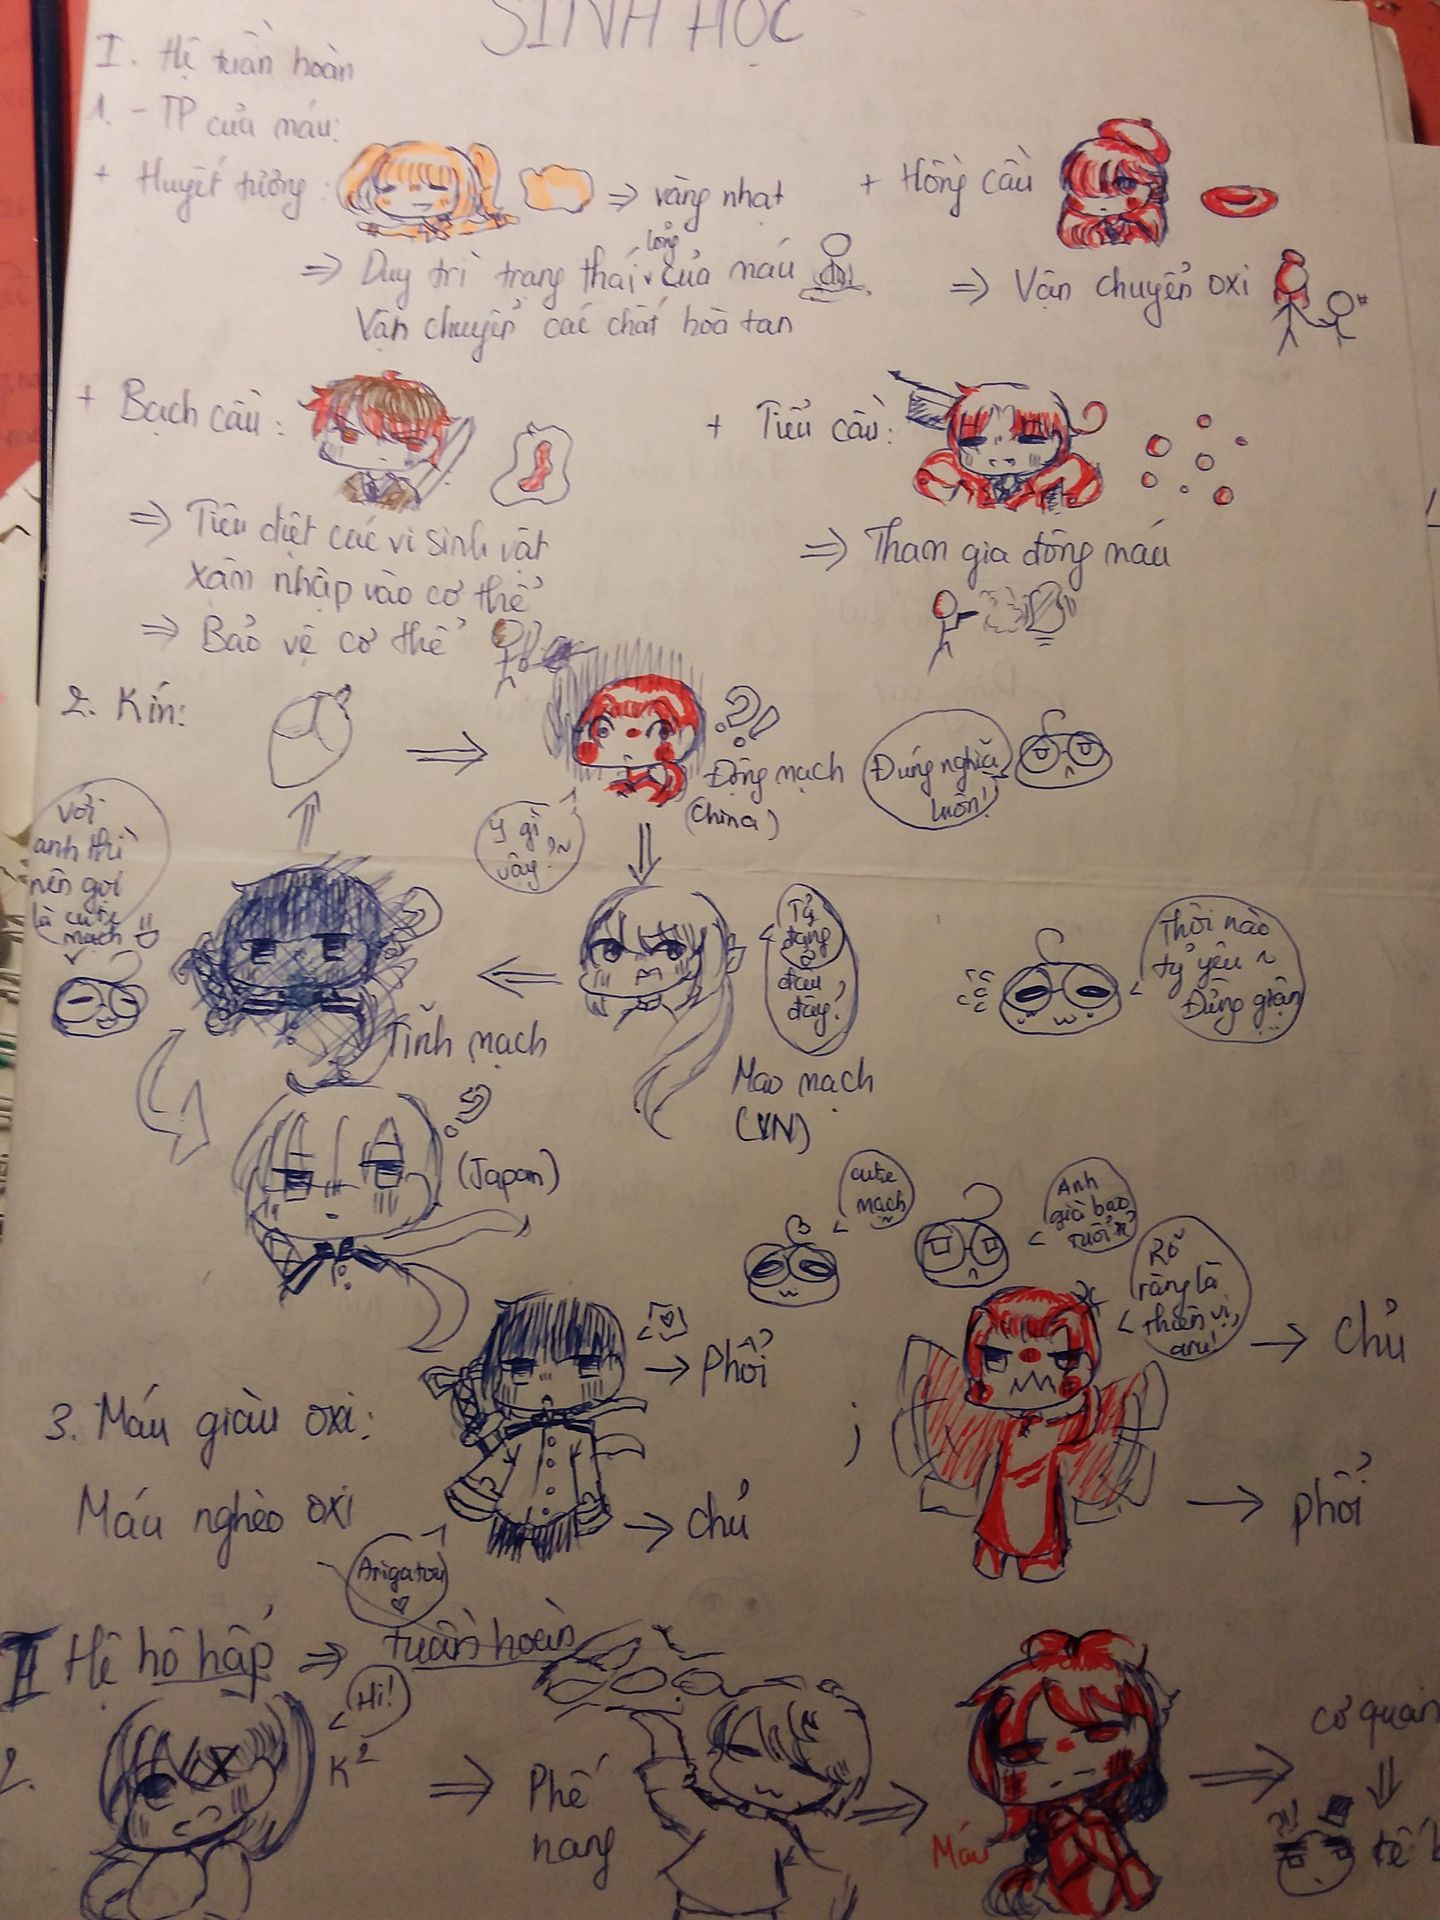 SINH HỌC
I. Hệ tuần hoàn
1. - TP của máu:
+ Huyết tương:
=> vàng nhạt
+ Hồng cầu
=> Duy trì trạng thái lỏng của máu
Vận chuyển các chất hoà tan
=> Vận chuyển oxi
+ Bạch cầu:
+ Tiểu cầu:
=> Tiêu diệt các vi sinh vật
xâm nhập vào cơ thể
=> Bảo vệ cơ thể
=> Tham gia đông máu
2. Kín:
?!
Động mạch
(China)
Đúng nghĩa
luôn!
Ý gì
vậy?~
Với
anh thì
nên gọi
là cutie
mạch
Tỷ
đang
ở
đâu
đây?
Thôi nào
tỷ yêu ~
Đừng giận
Tĩnh mạch
Mao mạch
(VN)
(Japan)
cutie
mạch~
Anh
già bao
tuổi
Rõ
ràng là
thiên vị,
aru!
3. Máu giàu oxi:
-> phổi
;
-> Chủ
Máu nghèo oxi
-> chủ
-> phổi
Arigatou
♡
II Hệ hô hấp => tuần hoàn
Hi!
2.
K²
=> Phế
nang
=>
Máu
=> cơ quan